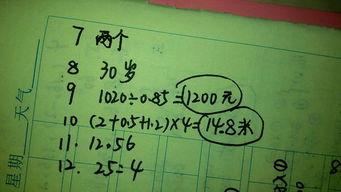 7 两个
8 30岁
9 1020÷0.85=1200元
10 (2+0.5+1.2)×4=14.8米
11. 12.56
12. 25=4
天气
星期